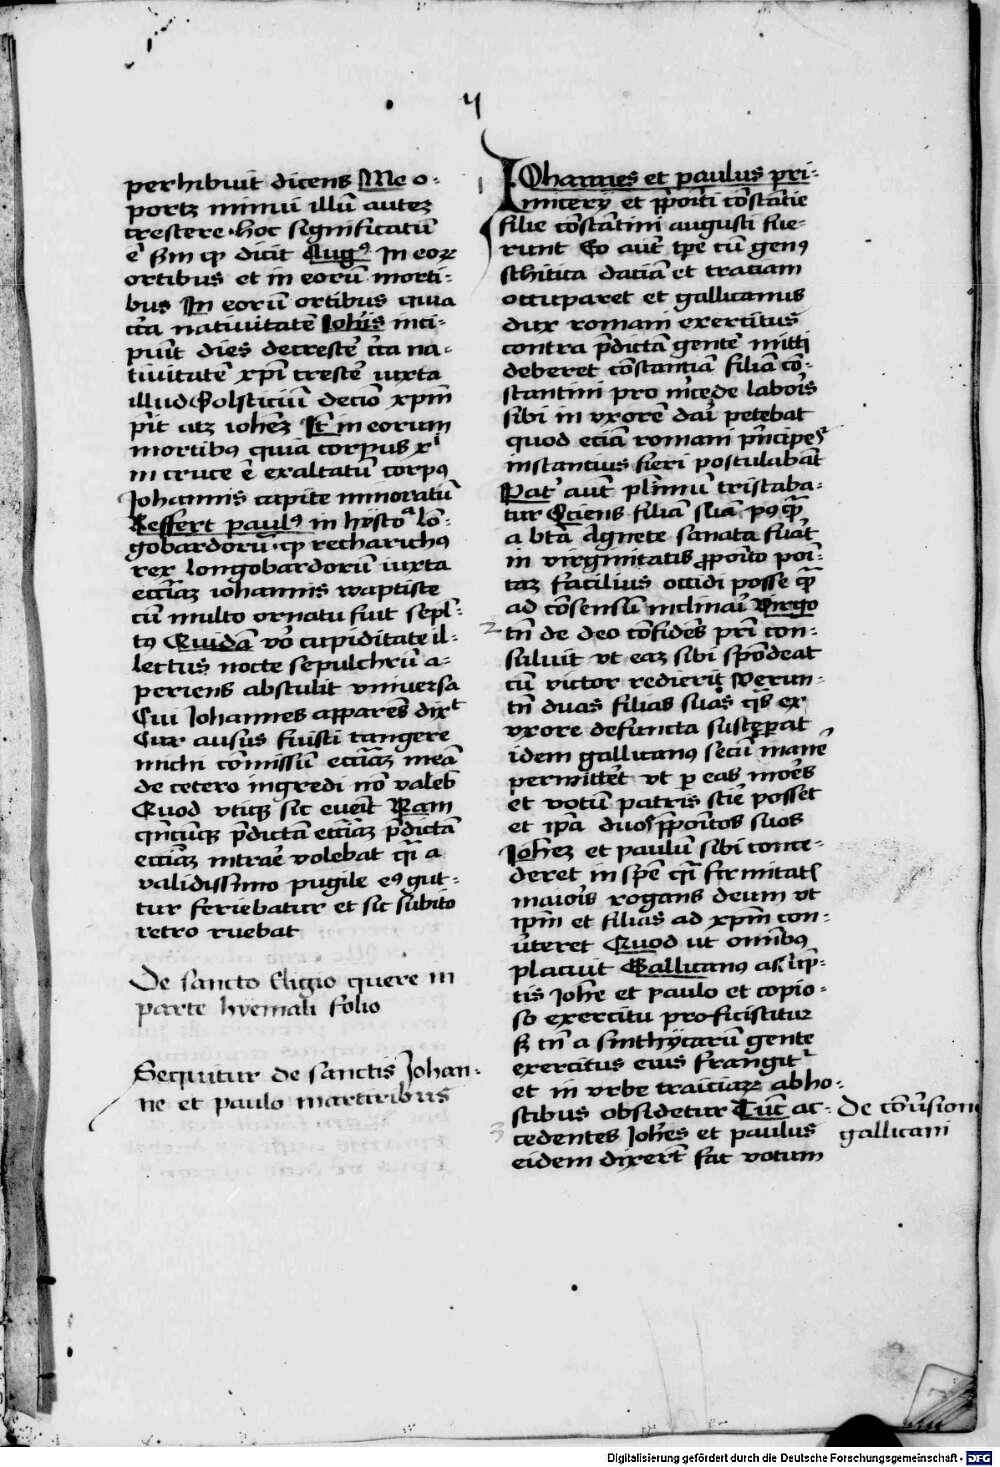 4
perhibuit dicens Me o-
portꝫ minui illū auteꝫ
crescere · hoc significatū
ē scdm qꝫ dicit Augꝰ In eoꝝ
ortibus et in eorū morti-
bus In eorū ortibus quia
cc̄a nativitatē Joh̄is inci-
piūt dies decrescē cc̄a na-
tivitatē xp̄i crescē iuxta
illud Solsticiū decio xp̄m
p̄it atqꝫ ioh̄eꝫ Itē in eorum
mortibꝰ quia corpus xi
in cruce ē exaltatū corpꝰ
Johannis capite minoratū
Reffert paulꝰ in hystoa lon-
gobardorū · qꝫ recharichꝰ
rex longobardorū iuxta
ecc̄iaꝫ iohannis waptiste
cū multo ornatu fuit sepl-
tꝰ Quidā vo cupiditate il-
lectus nocte sepulchrū a-
periens abstulit vniuersa
Cui Johannes apparēs dixt
Cur ausus fuisti tangere
michi cōmissū ecc̄iaꝫ meā
de cetero ingredi nō valeb
Quod vtiqꝫ sic eueīt Nam
qn̄cūqꝫ p̄dictā ecc̄iaꝫ p̄dictā
ecc̄iaꝫ intraē volebat qi a
validissimo pugile eꝰ gut-
tur feriebatur et sic subito
retro ruebat
De sancto Eligio quere in
parte hyemali folio
Sequitur de sanctis Johan-
ne et paulo martiribus
IOhannes et paulus pri-
micery et p̄poīti cōstātie
filie cōstātini augusti fue-
runt Eo aut tpe cū genꝰ
schitica daciā et traciam
occuparet et gallicanus
dux romani exercitus
contra p̄dictā gentē mitti
deberet cōstantiā filiā cō-
stantini pro m̄cede labois
sibi in vxorē dai petebat
quod eciā romani p̄ncipes
instantius fieri postulabāt
Pat aut plimū tristaba-
tur Sciens filiā suā pꝰ qꝫ
a bt̄a Agnete sanata fuāt
in virginitatis p̄poīto poi-
taꝫ facilius occidi posse qꝫ
ad cōsensū inclinai Virgo
tn̄ de deo cōfidēs p̄ri con-
suluit vt eaꝫ sibi spōdeat
cū victor redierit Verun-
tn̄ duas filias suas qs ex
vxore defuncta susceperat
idem gallicanꝰ secū manē
permittet vt p eas moēs
et votū patris scie posset
et ip̄a duos p̄poītos suos
Joh̄eꝫ et paulū sibi conce-
deret in spē qi firmitatis
maiois rogans deum vt
ip̄m et filias ad xp̄m con-
ūteret Quod ut omībꝰ
placuit Gallicanꝰ assūp-
tis Joh̄e et paulo et copio-
so exercitu proficiscitur
sꝫ tn̄ a sinthycarū gente
exercitus eius frangitr
et in vrbe traciaꝝ ab ho-
stibus obsidetur Tūc ac-
cedentes Joh̄es et paulus
eidem dixert fac votum
De cōu̅sione
gallicani
Digitalisierung gefördert durch die Deutsche Forschungsgemeinschaft - DFG